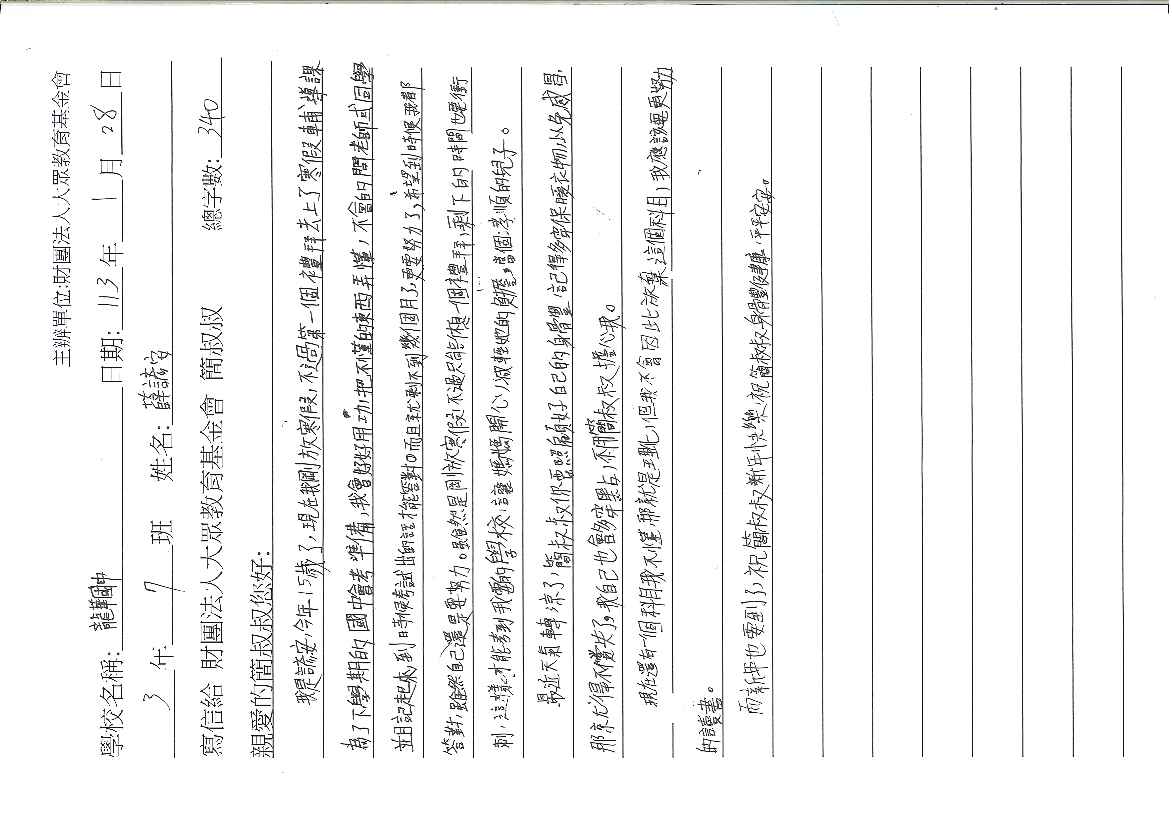 主辦單位:財團法人大眾教育基金會
學校名稱: 龍華國中 日期: 113 年 1 月 28 日
3 年 7 班 姓名: 薛諺安
寫信給 財團法人大眾教育基金會 簡叔叔 總字數: 340
親愛的簡叔叔您好:
我是諺安,今年15歲了,現在我剛放寒假,不過第一個禮拜去上了寒假輔導課
為了下學期的國中會考準備,我會好好用功,把不懂的東西弄懂,不會的問老師或同學
並且記起來,到時候考試出的話才能答對。而且就剩不到幾個月了,更要努力了,希望到時候我都
答對,雖然自己還是要努力。雖然是剛放寒假,不過只能休想一個禮拜,剩下的時間也要衝
刺,這樣才能考到我要的學校,讓媽媽開心,減輕她的負擔,當個孝順的兒子。
最近天氣轉涼了,簡叔叔你要照顧好自己的身體,記得多穿保暖衣物,以免感冒,
那就得不償失了,我自己也會多穿點,不用簡叔叔擔心我。
現在還有一個科目我不懂,那就是理化,但我不會因此放棄這個科目,我應該要更努力
的讀書。
而新年也要到了,祝簡叔叔新年快樂,祝簡叔叔身體健康,平平安安。